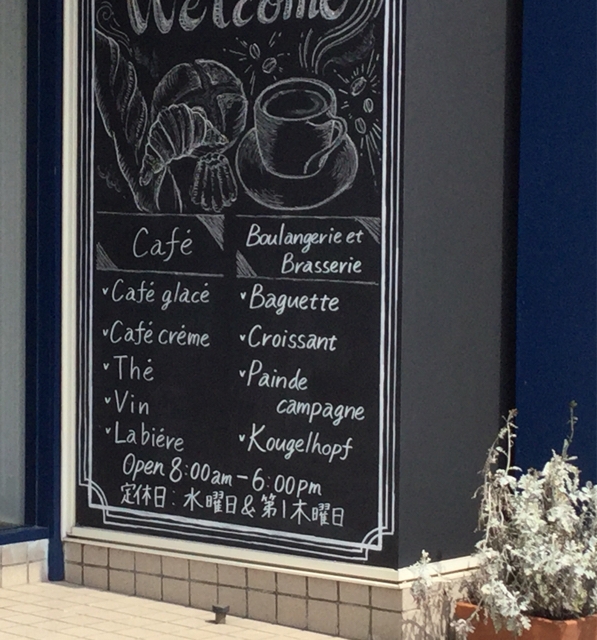 Welcome
Café
Boulangerie et
Brasserie
Café glacé
Café créme
Thé
Vin
Labiére
Baguette
Croissant
Painde
campagne
Kougelhopf
Open 8:00am-6:00pm
定休日:水曜日&第1木曜日